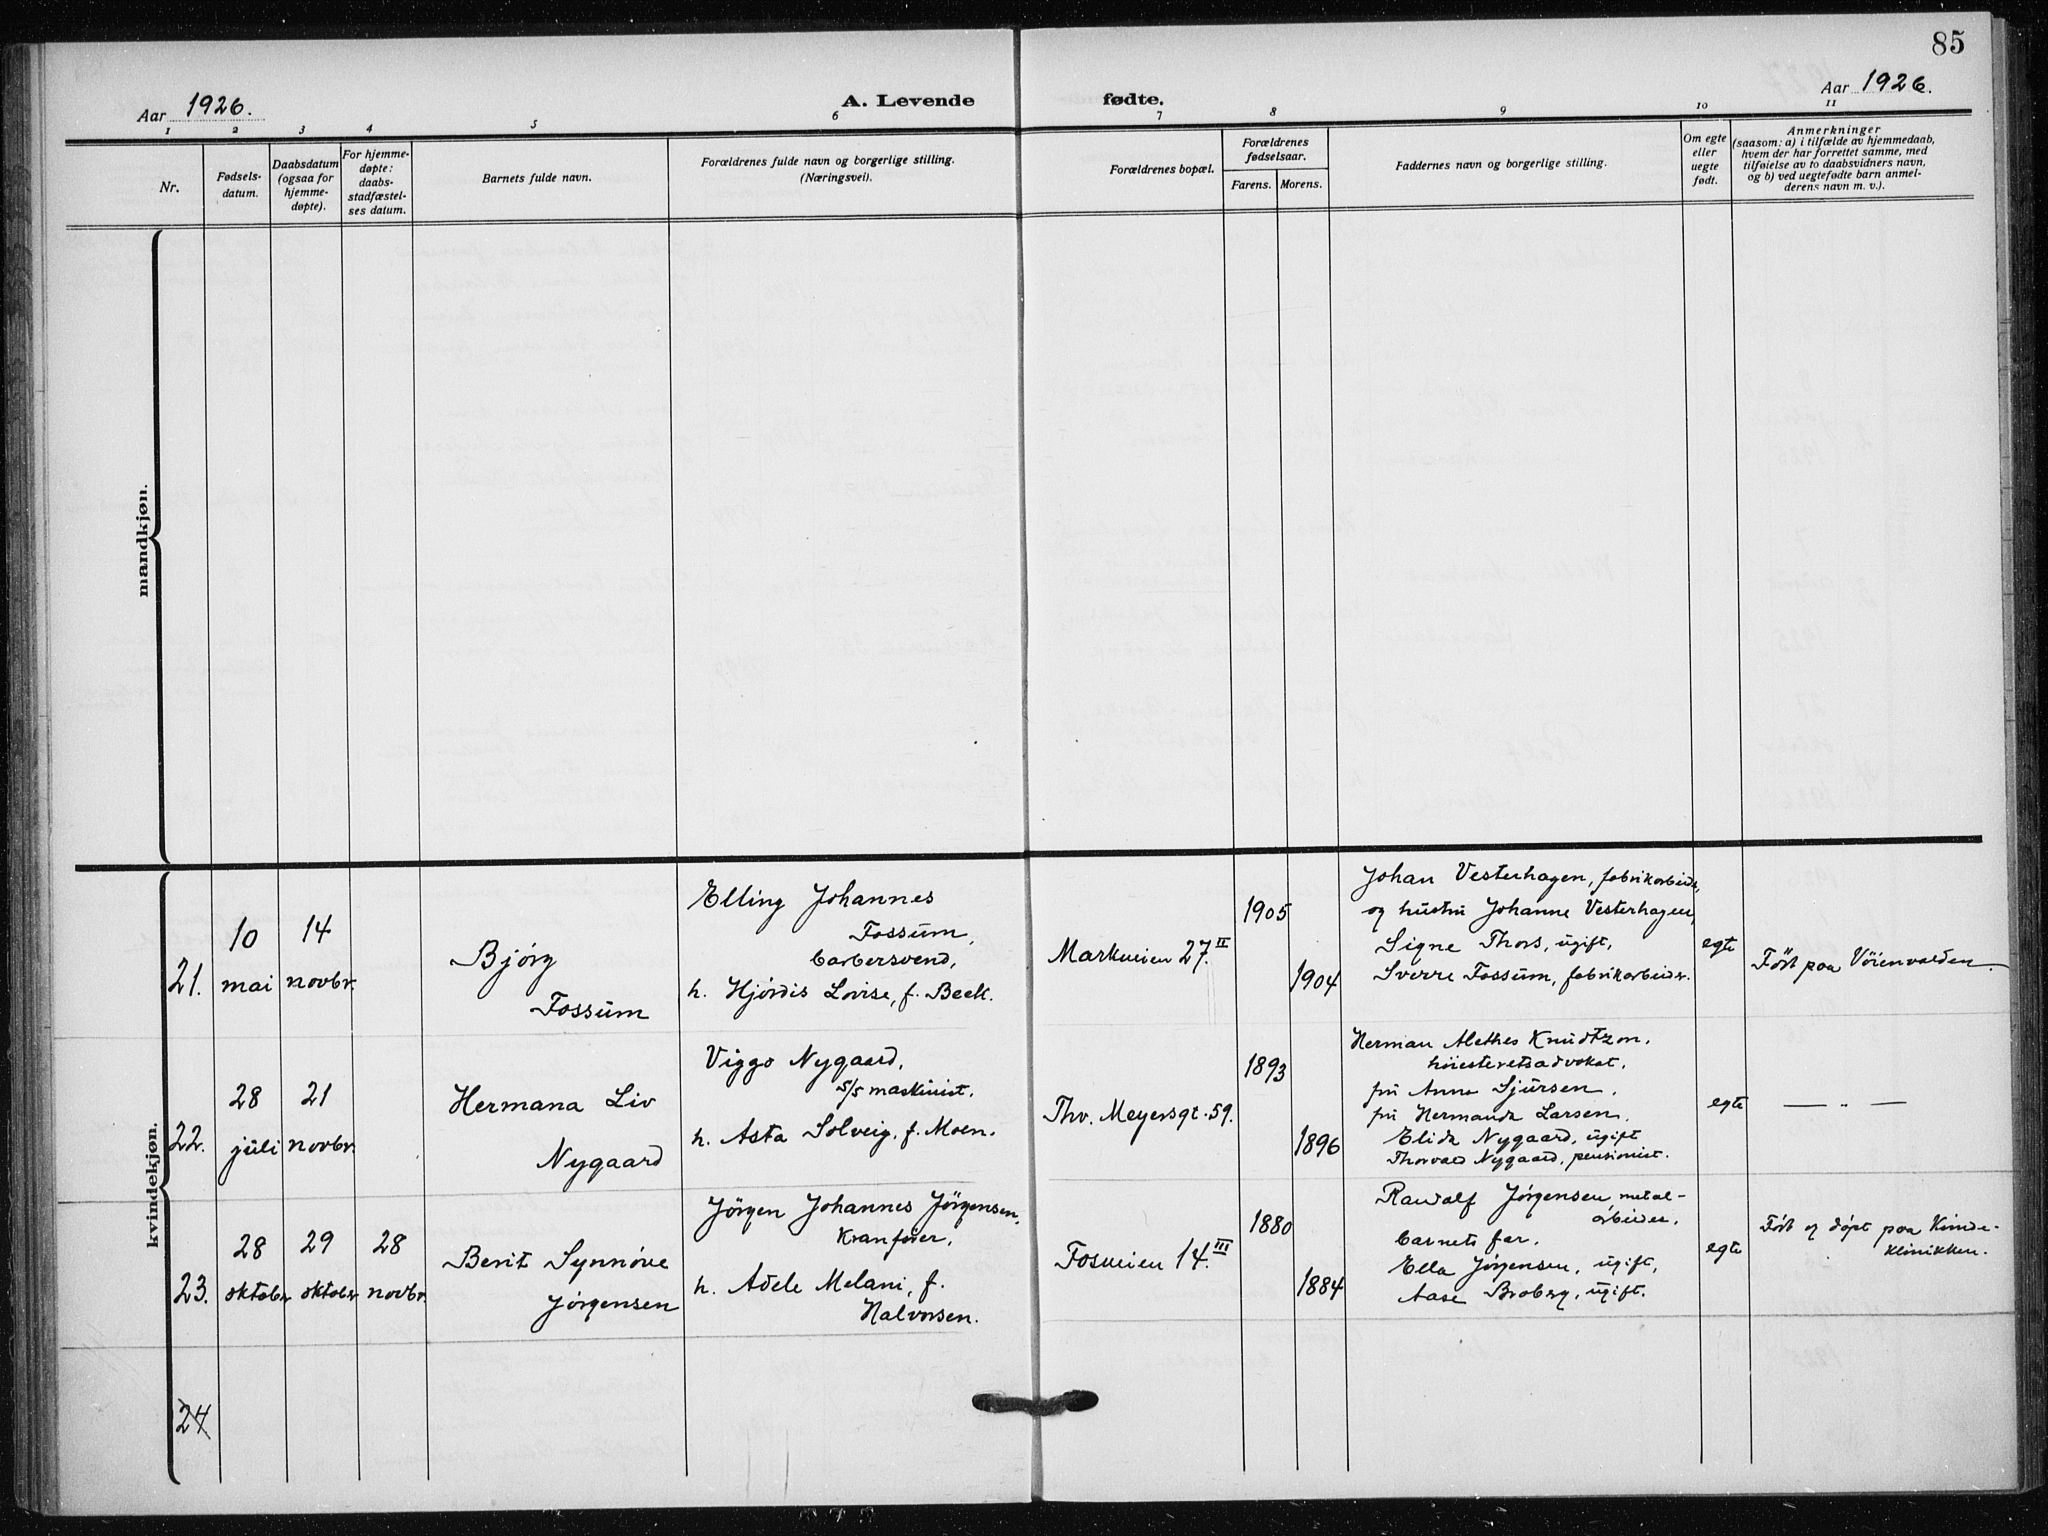 85
Aar 1926.
A. Levende fødte.
Aar 1926.
1 2 3 4 5 6 7 8 9 10 11
Nr.
Fødsels-
datum.
Daabsdatum
(ogsaa for
hjemme-
døpte).
For hjemme-
døpte:
daabs-
stadfæstel-
ses datum.
Barnets fulde navn.
Forældrenes fulde navn og borgerlige stilling.
(Næringsvei).
Forældrenes bopæl.
Forældrenes
fødselsaar.
Farens. Morens.
Faddernes navn og borgerlige stilling.
Om egte
eller
uegte
født.
Anmerkninger
(saasom: a) i tilfælde av hjemmedaab,
hvem der har forrettet samme, med
tilføielse av to daabsvidners navn,
og b) ved uegtefødte barn anmel-
derens navn m. v.).
mandkjøn.
kvindekjøn.
21.
10
mai
14
novbr.
Bjørg
Fossum
Elling Johannes
Fossum,
barbersvend,
h. Hjørdis Lovise, f. Beck.
Markveien 27.II
1905
1904
Johan Vesterhagen, fabrikarbeider,
og hustru Johanne Vesterhagen,
Signe Thors, ugift,
Sverre Fossum, fabrikarbeider.
egte
Født paa Vøienvolden.
22.
28
juli
21
novbr.
Hermana Liv
Nygaard
Viggo Nygaard,
s/s maskinist.
h. Asta Solveig, f. Moen.
Thv. Meyersgt. 59.
1893
1896
Herman Alethes Knudtzon,
høiesteretsadvokat.
fru Anna Sjursen,
fru Hermanda Larsen,
Elida Nygaard, ugift
Thorvald Nygaard, pensionist.
egte
— " —
23.
28
oktober
29
oktober
28
novbr.
Berit Synnøve
Jørgensen
Jørgen Johannes Jørgensen,
Kranfører,
h. Adele Melani, f.
Halvorsen.
Fosveien 14.III
1880
1884
Randolf Jørgensen metal-
arbeider.
barnets far.
Ella Jørgensen, ugift,
Aase Broberg, ugift.
egte
Født og døpt paa Kvinde-
klinikken.
24